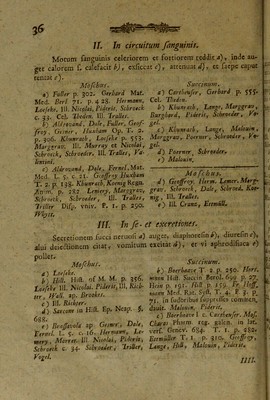 36
II. In circuitum sanguinis.
Motum sanguinis celeriorem et fortiorem reddit a), inde au-
get calorem s. calefacit b), exsiccat c), attenuat d), et saepe caput
tentat e).
Moschus.
a) Fuller p. 302. Gerhard Mat.
Med. Berl 71. p. 428. Hermann,
Loeseke, Ill. Nicolai, Pideric, Schroeck
c. 33. Cel. Theden. Ill. Tralles.
b) Aldermand, Dale, Fuller, Geof-
froy, Gorter, Hunlam Op. T. 2.
p. 306. Khunrath, Loeseke p. 557.
Marggrav. Ill. Murray et Nicolai,
Schroeck, Schroeder, Ill. Tralles, Va-
lentini.
c) Aldermand, Dale, Fernel, Mat.
Med. L. 5. c. 21. Geoffroy, Huxham
T. 2. p. 138. Khunrath, Koenig Regn.
Anim. p. 282. Lemery, Marggrav,
Schroeck, Schroeder, Ill. Tralles,
Triller Diss. vniv. T. 1. p. 290.
Whytt.
Succinum.
a) Cartheuser, Gerhard p. 555.
Cel. Theden.
b) Khunrath, Lange, Marggrav,
Burghard, Pideric, Schroeder, Vo-
gel.
c) Khunrath, Lange, Malouin,
Marggrav, Poerner, Schroeder, Vo-
gel.
d) Poerner, Schroeder.
e) Malouin.
Moschus.
d) Geoffroy, Herm. Lemer. Marg-
grav, Schroeck, Dale, Schroed. Koe-
nig, Ill. Tralles.
e) Ill. Crantz, Ettmüll.
III. In se- et excretiones.
Secretionem succi neruosi a) auget, diaphoresin b), diuresin c),
alui deiectionem citat, vomitum excitat d), et vi aphrodisiaca e)
pollet.
Moschus.
a) Loeseke.
b) Hill. Hist. of M. M. p. 356.
Loeseke Ill. Nicolai, Pideric, Ill. Rich-
ter, Wall. ap. Brookes.
c) Ill. Richter.
d) Saccom in Hist. Ep. Neap. §.
688.
e) Bonstavola ap. Gesner, Dale,
Fernel. L. 5. c. 16. Hermann, Le-
mery, Moret. Ill. Nicolai, Pideric,
Schroeck c. 34. Schroeder, Triller,
Vogel.
Succinum.
b) Boerhaave T. 4 p. 250. Here-
mann Hist. Succin. Berol. 699 p. 97.
Hein p. 191. Hill p. 159. Fr. Hoff-
mann Med. Rat. Syst. T. 4. P. 3. p.
71. in suffocibus suppressis commen-
dauit. Malouin, Pideric.
c) Boerhaave l. c. Cartheuser. Mas.
Charas Pharm. reg. galen. in lat.
vers. Genev. 684. T. 1. p. 282.
Ettmüller T. 1 p. 310. Geoffroy,
Lange, Hill, Malouin, Pideric.
IIII.